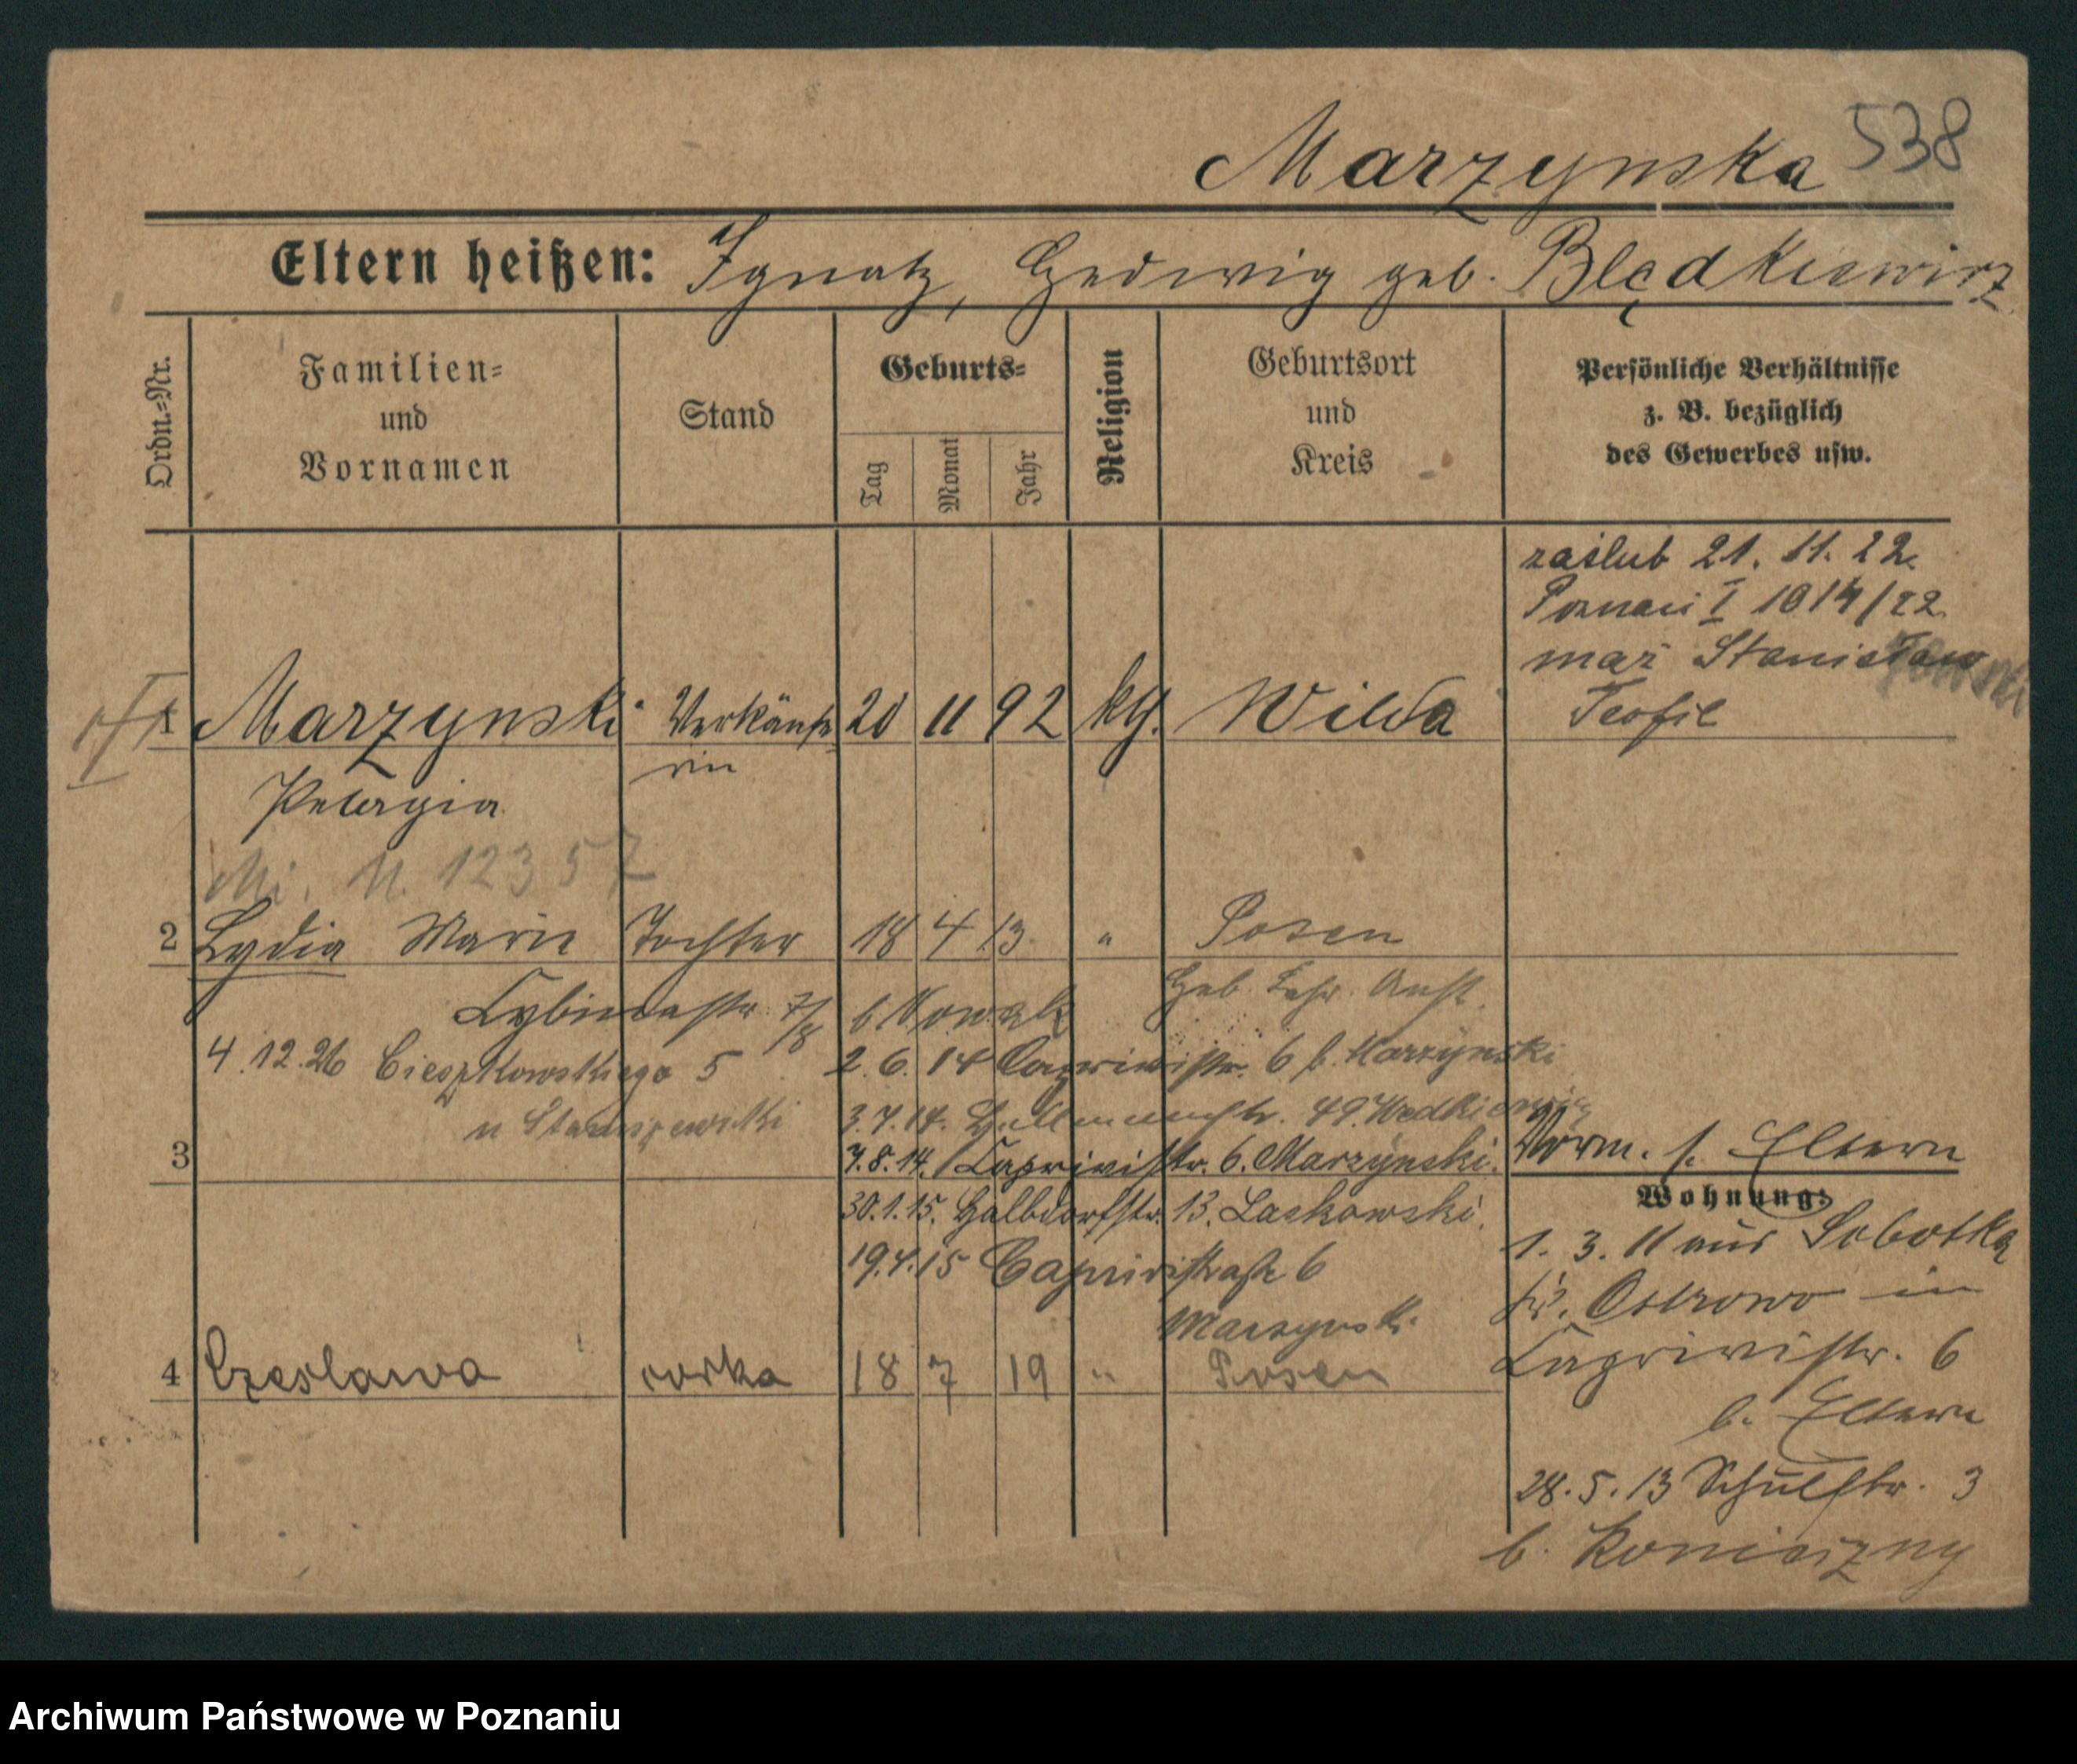 Marzynska 538
Eltern heißen: Ignatz, Hedwig geb. Blędkiewicz
Ordn.=Nr.
Familien=
und
Vornamen
Stand
Geburts=
Tag
Monat
Jahr
Religion
Geburtsort
und
Kreis
Persönliche Verhältnisse
z. B. bezüglich
des Gewerbes usw.
zaślub 21. 11. 22.
Poznań I 1014/22
mąż Stanisław
Teofil
1 Marzynski Verkäufe 20 11 92 kg. Wilda
rin
Pelagia
N. 12357
2 Lydia Marie Tochter 18 4 13 " Posen
Geb. Anst.
7/8 b Nowak
4.12.26 Cieszkowskiego 5
2.6.14 Caprivistr. 6 b. Marzynski
u
3.7.14. 49.
3
7.8.14. Caprivistr. 6. Marzynski.
Vorm. s. Eltern
30.1.15. Halbdorfstr. 13. Laskowski.
Wohnung:
1. 3. 11 aus Sobotka
19.4.15 Caprivistraße 6
Kr. Ostrowo in
Marzynski
Caprivistr. 6
4 Czesława córka 18 7 19 " Posen
b. Eltern
28. 5. 13 Schulstr. 3
b. Konieczny
Archiwum Państwowe w Poznaniu